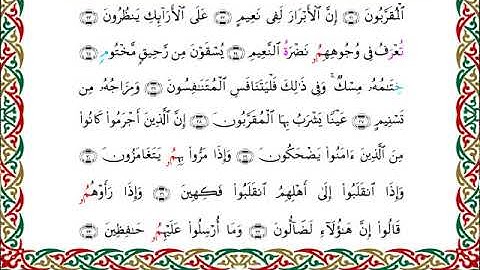 ٱلْمُقَرَّبُونَ ٢١ إِنَّ ٱلْأَبْرَارَ لَفِى نَعِيمٍ ٢٢ عَلَى ٱلْأَرَآئِكِ يَنظُرُونَ ٢٣
تُعْرَفُ فِى وُجُوهِهِمُۥ نَضْرَةُ ٱلنَّعِيمِ ٢٤ يُسْقَوْنَ مِن رَّحِيقٍ مَّخْتُومٍ ٢٥
خِتَٰمُهُۥ مِسْكٌ ۚ وَفِى ذَٰلِكَ فَلْيَتَنَافَسِ ٱلْمُتَنَٰفِسُونَ ٢٦ وَمِزَاجُهُۥ مِن
تَسْنِيمٍ ٢٧ عَيْنًا يَشْرَبُ بِهَا ٱلْمُقَرَّبُونَ ٢٨ إِنَّ ٱلَّذِينَ أَجْرَمُوا۟ كَانُوا۟
مِنَ ٱلَّذِينَ ءَامَنُوا۟ يَضْحَكُونَ ٢٩ وَإِذَا مَرُّوا۟ بِهِمُۥ يَتَغَامَزُونَ ٣٠
وَإِذَا ٱنقَلَبُوٓا۟ إِلَىٰ أَهْلِهِمُ ٱنقَلَبُوا۟ فَكِهِينَ ٣١ وَإِذَا رَأَوْهُمُۥ
قَالُوٓا۟ إِنَّ هَٰٓؤُلَآءِ لَضَآلُّونَ ٣٢ وَمَآ أُرْسِلُوا۟ عَلَيْهِمُۥ حَٰفِظِينَ ٣٣